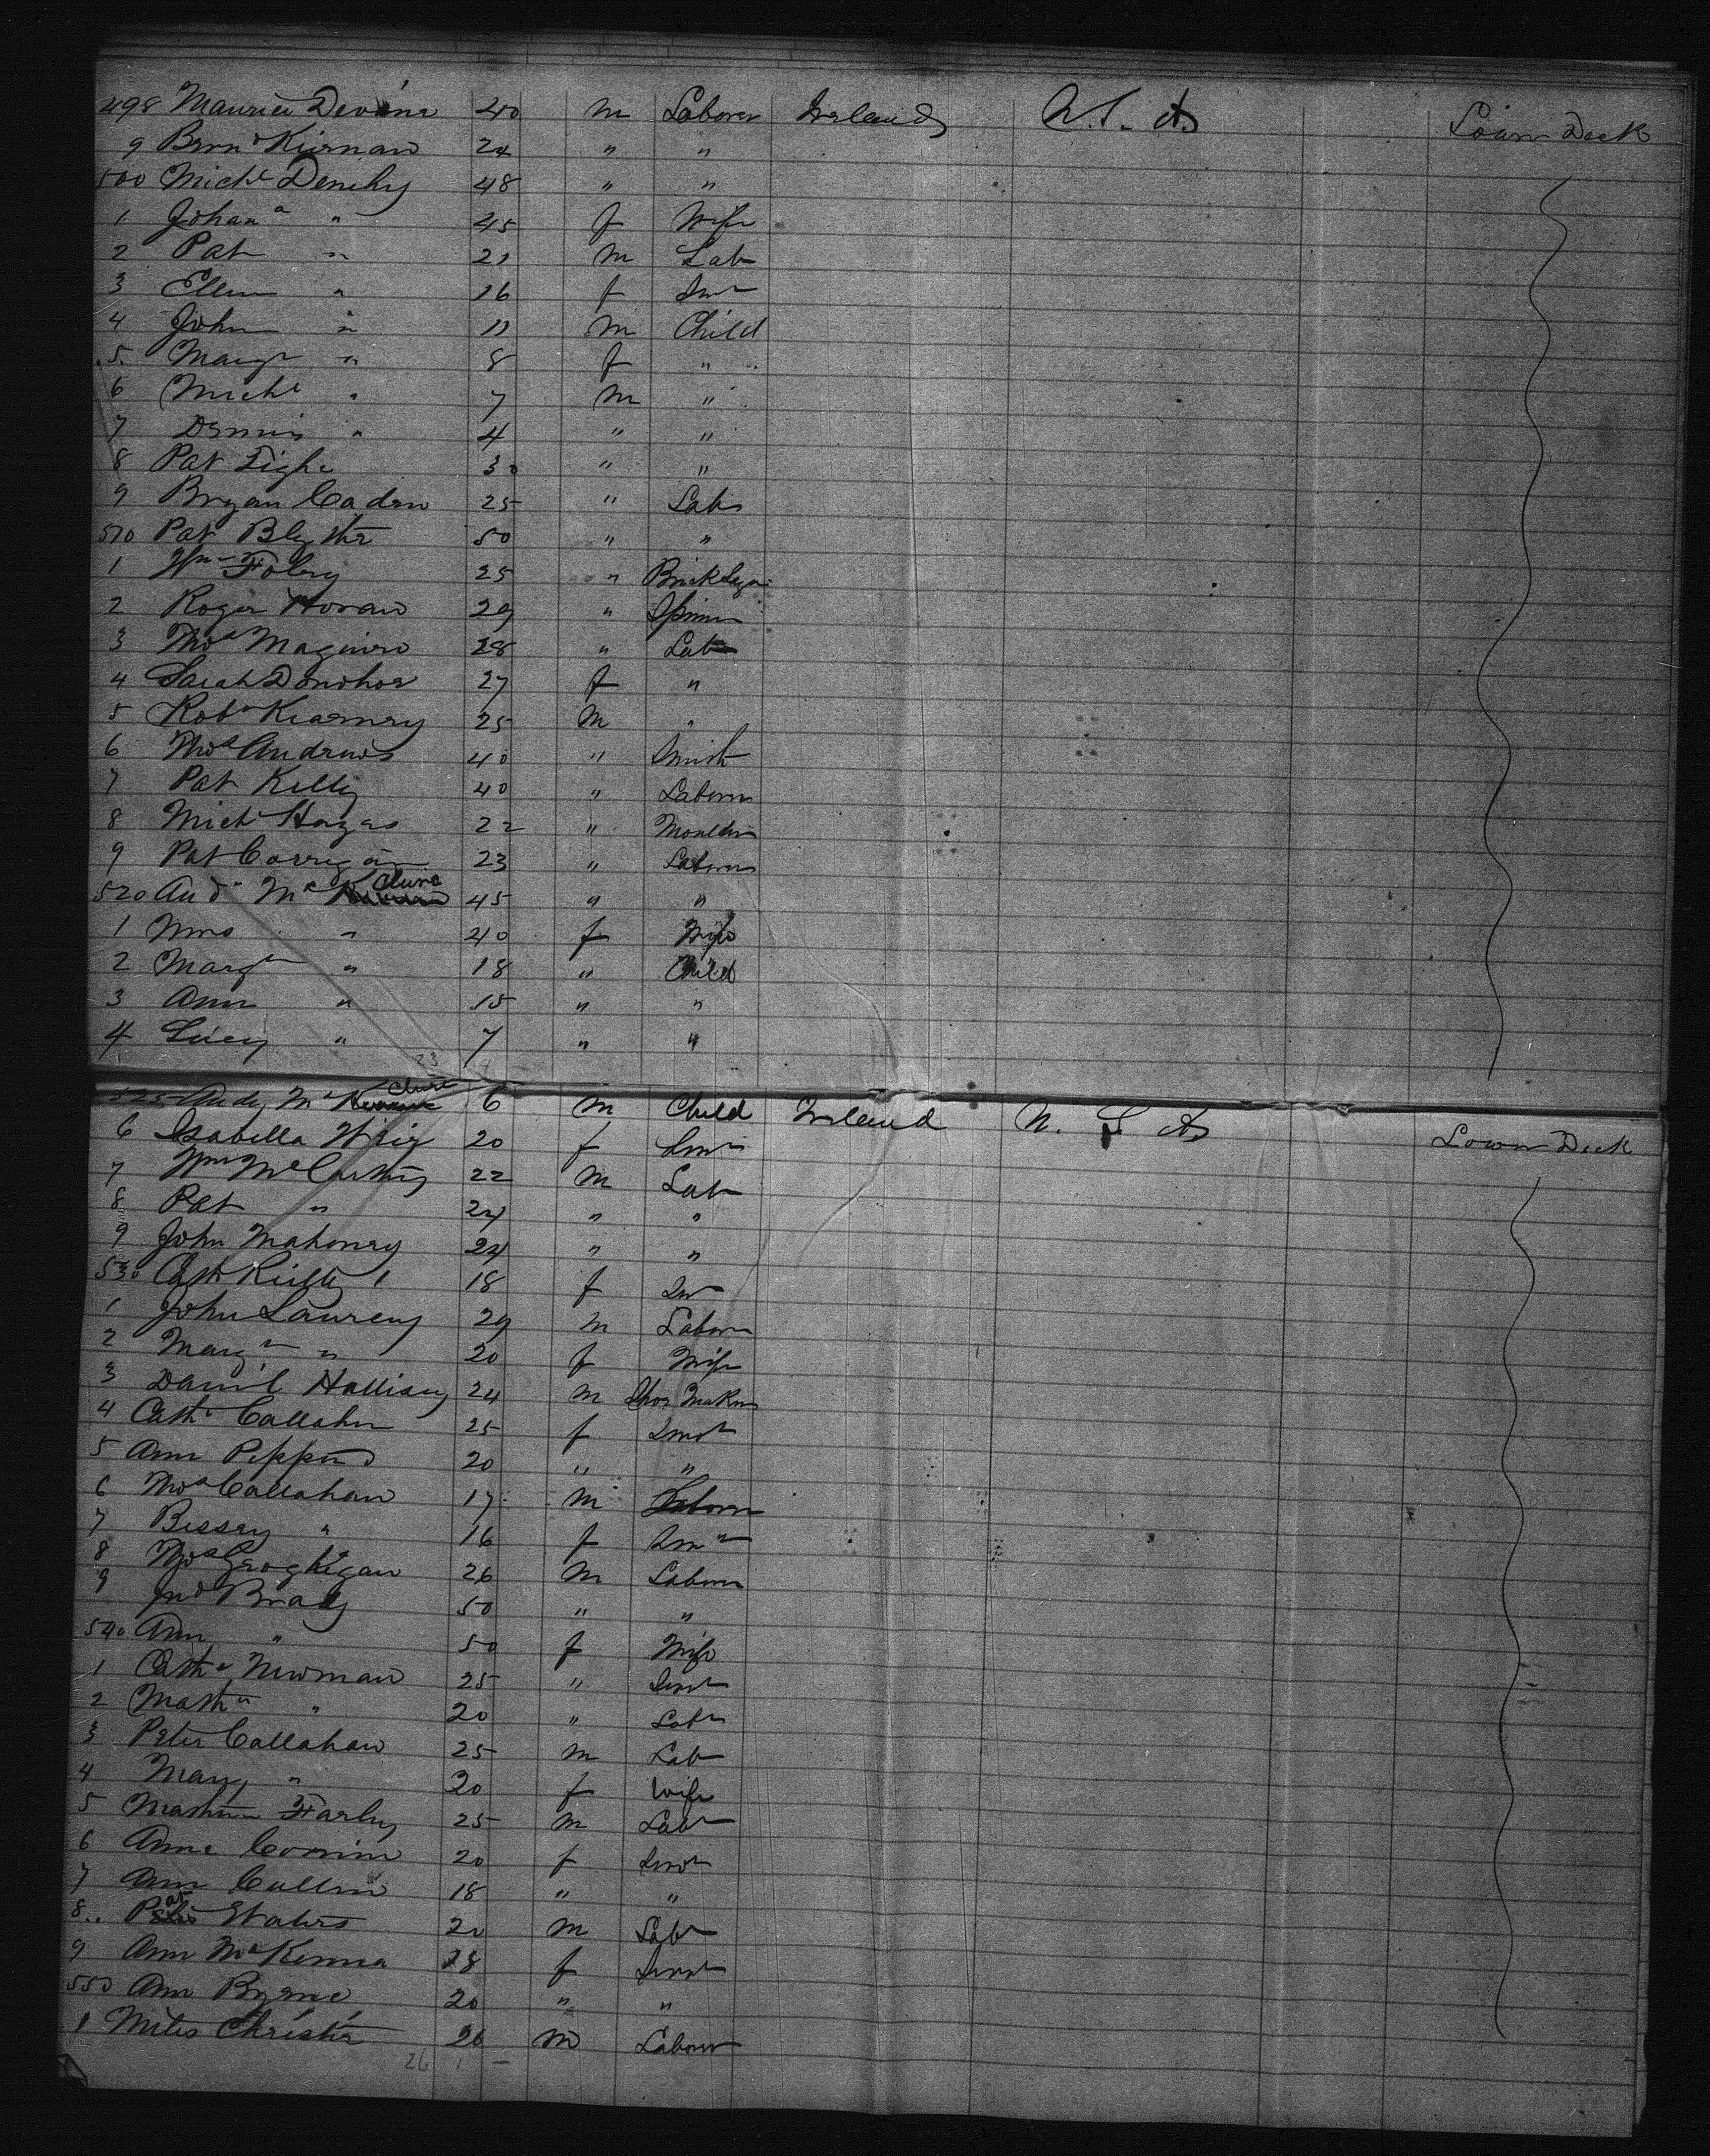 498 Maurice Devine 40 m Laborer Ireland U.S.A. Lower Deck
9 Bern^d Kiernan 24 " "
500 Mich^l Denehy 48 " "
1 Johan^a " 45 f Wife
2 Pat " 21 m Lab
3 Ellen " 16 f
4 John " 11 m Child
5 Marg^t " 8 f "
6 Mich^l " 7 m "
7 Dennis " 4 " "
8 Pat Tighe 30 " "
9 Bryan Caden 25 " Lab
510 Pat Blythe 50 " "
1 Wm Foley 25 " Bricklayer
2 Roger Horan 29 " Spinner
3 Tho^s Maguire 28 " Lab
4 Sarah Donohoe 27 f "
5 Rob^t Kearney 25 m "
6 Tho^s Andrews 40 " Smith
7 Pat Kelly 40 " Laborer
8 Mich^l Hayes 22 " Moulder
9 Pat Corrigan 23 " Laborer
520 And^w McClure 45 " "
1 Mrs " 40 f Wife
2 Marg^t " 18 " Child
3 Ann " 15 " "
4 Lucy " 7 " "
23
525 Andy McClure 6 m Child Ireland U.S.A. Lower Deck
6 Isabella Weir 20 f
7 Wm McCarthy 22 m Lab
8 Pat " 24 " "
9 John Mahoney 24 " "
530 Cath Reilly 18 f
1 John Laurency 29 m Laborer
2 Marg^t " 20 f Wife
3 Daniel Hallisey 24 m Shoe Maker
4 Cath^e Callahan 25 f Servt
5 Ann Peppard 20 " "
6 Tho^s Callahan 17 m Laborer
7 Bessey " 16 f
8 Tho^s Geoghegan 26 m Laborer
9 Jno Brady 50 " "
540 Ann " 50 f Wife
1 Cath^e Newman 25 " Servt
2 " 20 " Lab
3 Peter Callahan 25 m Lab
4 Mary " 20 f Wife
5 Farley 25 m Lab
6 Anne 20 f Servt
7 Ann Cullen 18 " "
8 Pat Waters 20 m Lab
9 Ann McKenna 28 f Servt
550 Ann Byrne 20 " "
1 Miles Christie 26 m Laborer
26